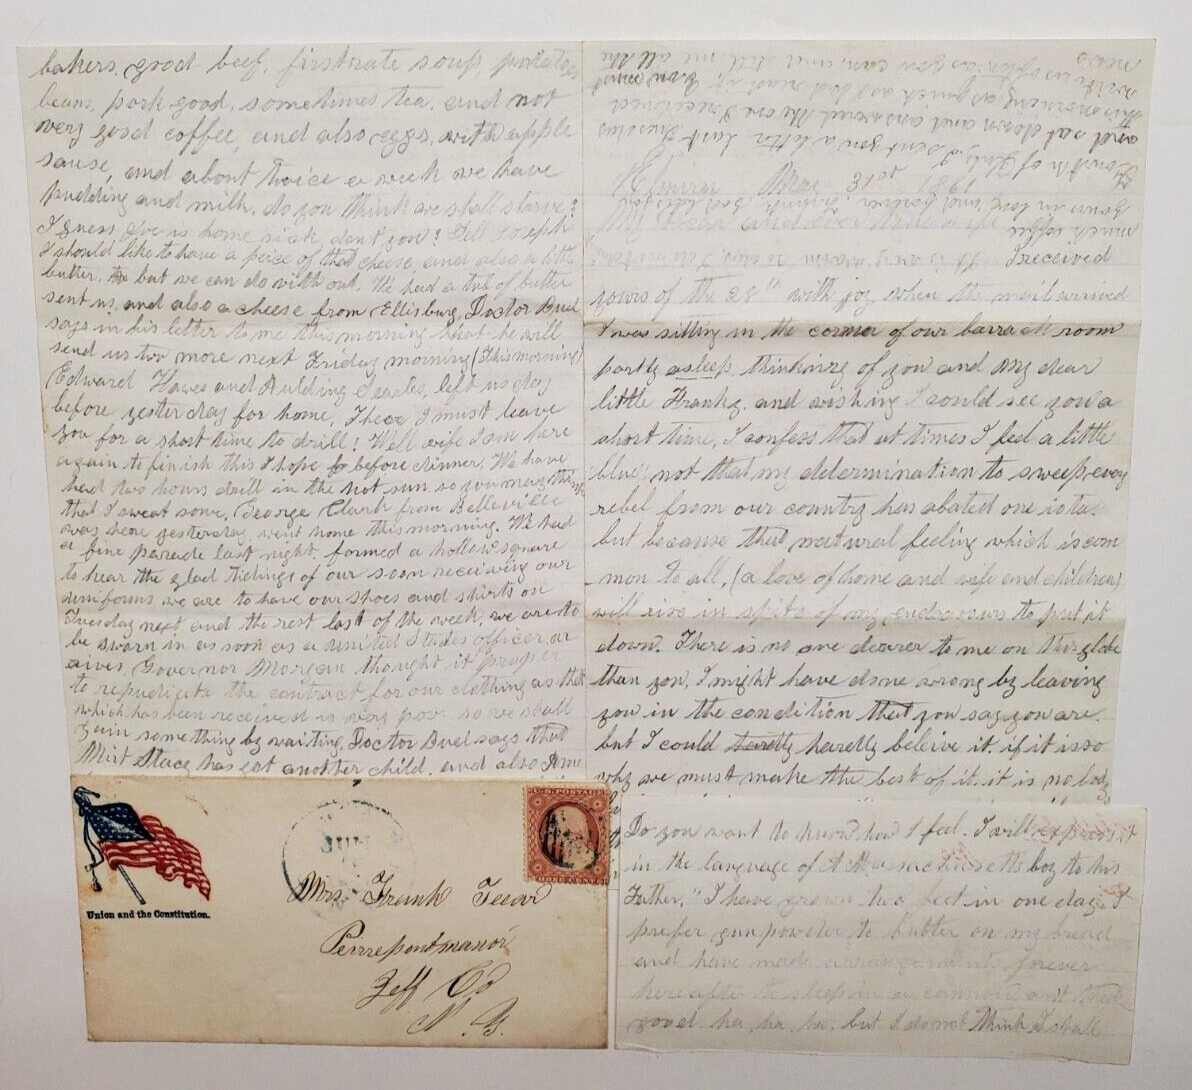 bakers. good beef, firstrate soup, potatoes
beans, pork good, sometimes tea, and not
very good coffee, and also eggs, with apple
sause, and about twice a week we have
pudding and milk. do you think we shall starve?
I guess is home sick, dont you? Tell Joseph
I should like to have a peice of that cheese, and also a little
butter. but we can do with out. We had a tub of butter
sent us, and also a cheese from Ellisburg, Doctor Buel
says in his letter to me this morning that he will
send us two more next Friday morning (This morning)
Edward Hawes and Searles, left us day
before yesterday for home, I hear I must leave
you for a short time to drill! Well wife I am here
again to finish this I hope before dinner. We have
had two hours drill in the hot sun so you may think
that I sweat some. George Clark from Belleville
was here yesterday went home this morning. We had
a fine parade last night, formed a hollow square
to hear the glad tidings of our soon receiving our
uniforms we are to have our shoes and shirts on
Tuesday next and the rest last of the week, we are to
be sworn in as soon as a United States officer ar
rives. Governor Morgan thought it proper
to repudiate the contract for our clothing as that
which has been received is very poor so we shall
gain something by waiting. Doctor Buel says that
Mirt Stacy has got another child. and also
news
write as often as you can, and tell me all the
this morning
and sat down and answered the one I received
I sent you a letter last Tuesday
Elmira May 31st 1861
yours in love and forever.
much coffee
It is very warm
I received
yours of the 28th with joy, when the mail arrived
I was sitting in the corner of our barrack room
partly asleep, thinking of you and my dear
little Franky. and wishing I could see you a
short time, I confess that at times I feel a little
blue, not that my determination to sweep every
rebel from our country has abated one iota.
but because that natural feeling which is com
-mon to all, (a love of home and wife and children)
will rise in spite of my endeavours to put it
down. There is no one dearer to me on this globe
than you, I might have done wrong by leaving
you in the condition that you say you are.
but I could hardly hardly beleive it, if it is so
why we must make the best of it. it is no body
Do you want to know how I feel. I will express it
in the language of A Massachusetts boy to his
Father, "I have grown two feet in one day, I
prefer gunpowder to butter on my bread
and have made arrangements forever
hereafter to sleep in a cannon aint that
good ha, ha, ha, but I do not think I shall
Union and the Constitution.
JUN
U.S. POSTAGE
THREE CENTS
Mrs. Frank Tecar
Pierrepont manor
Jeff Co
N. Y.